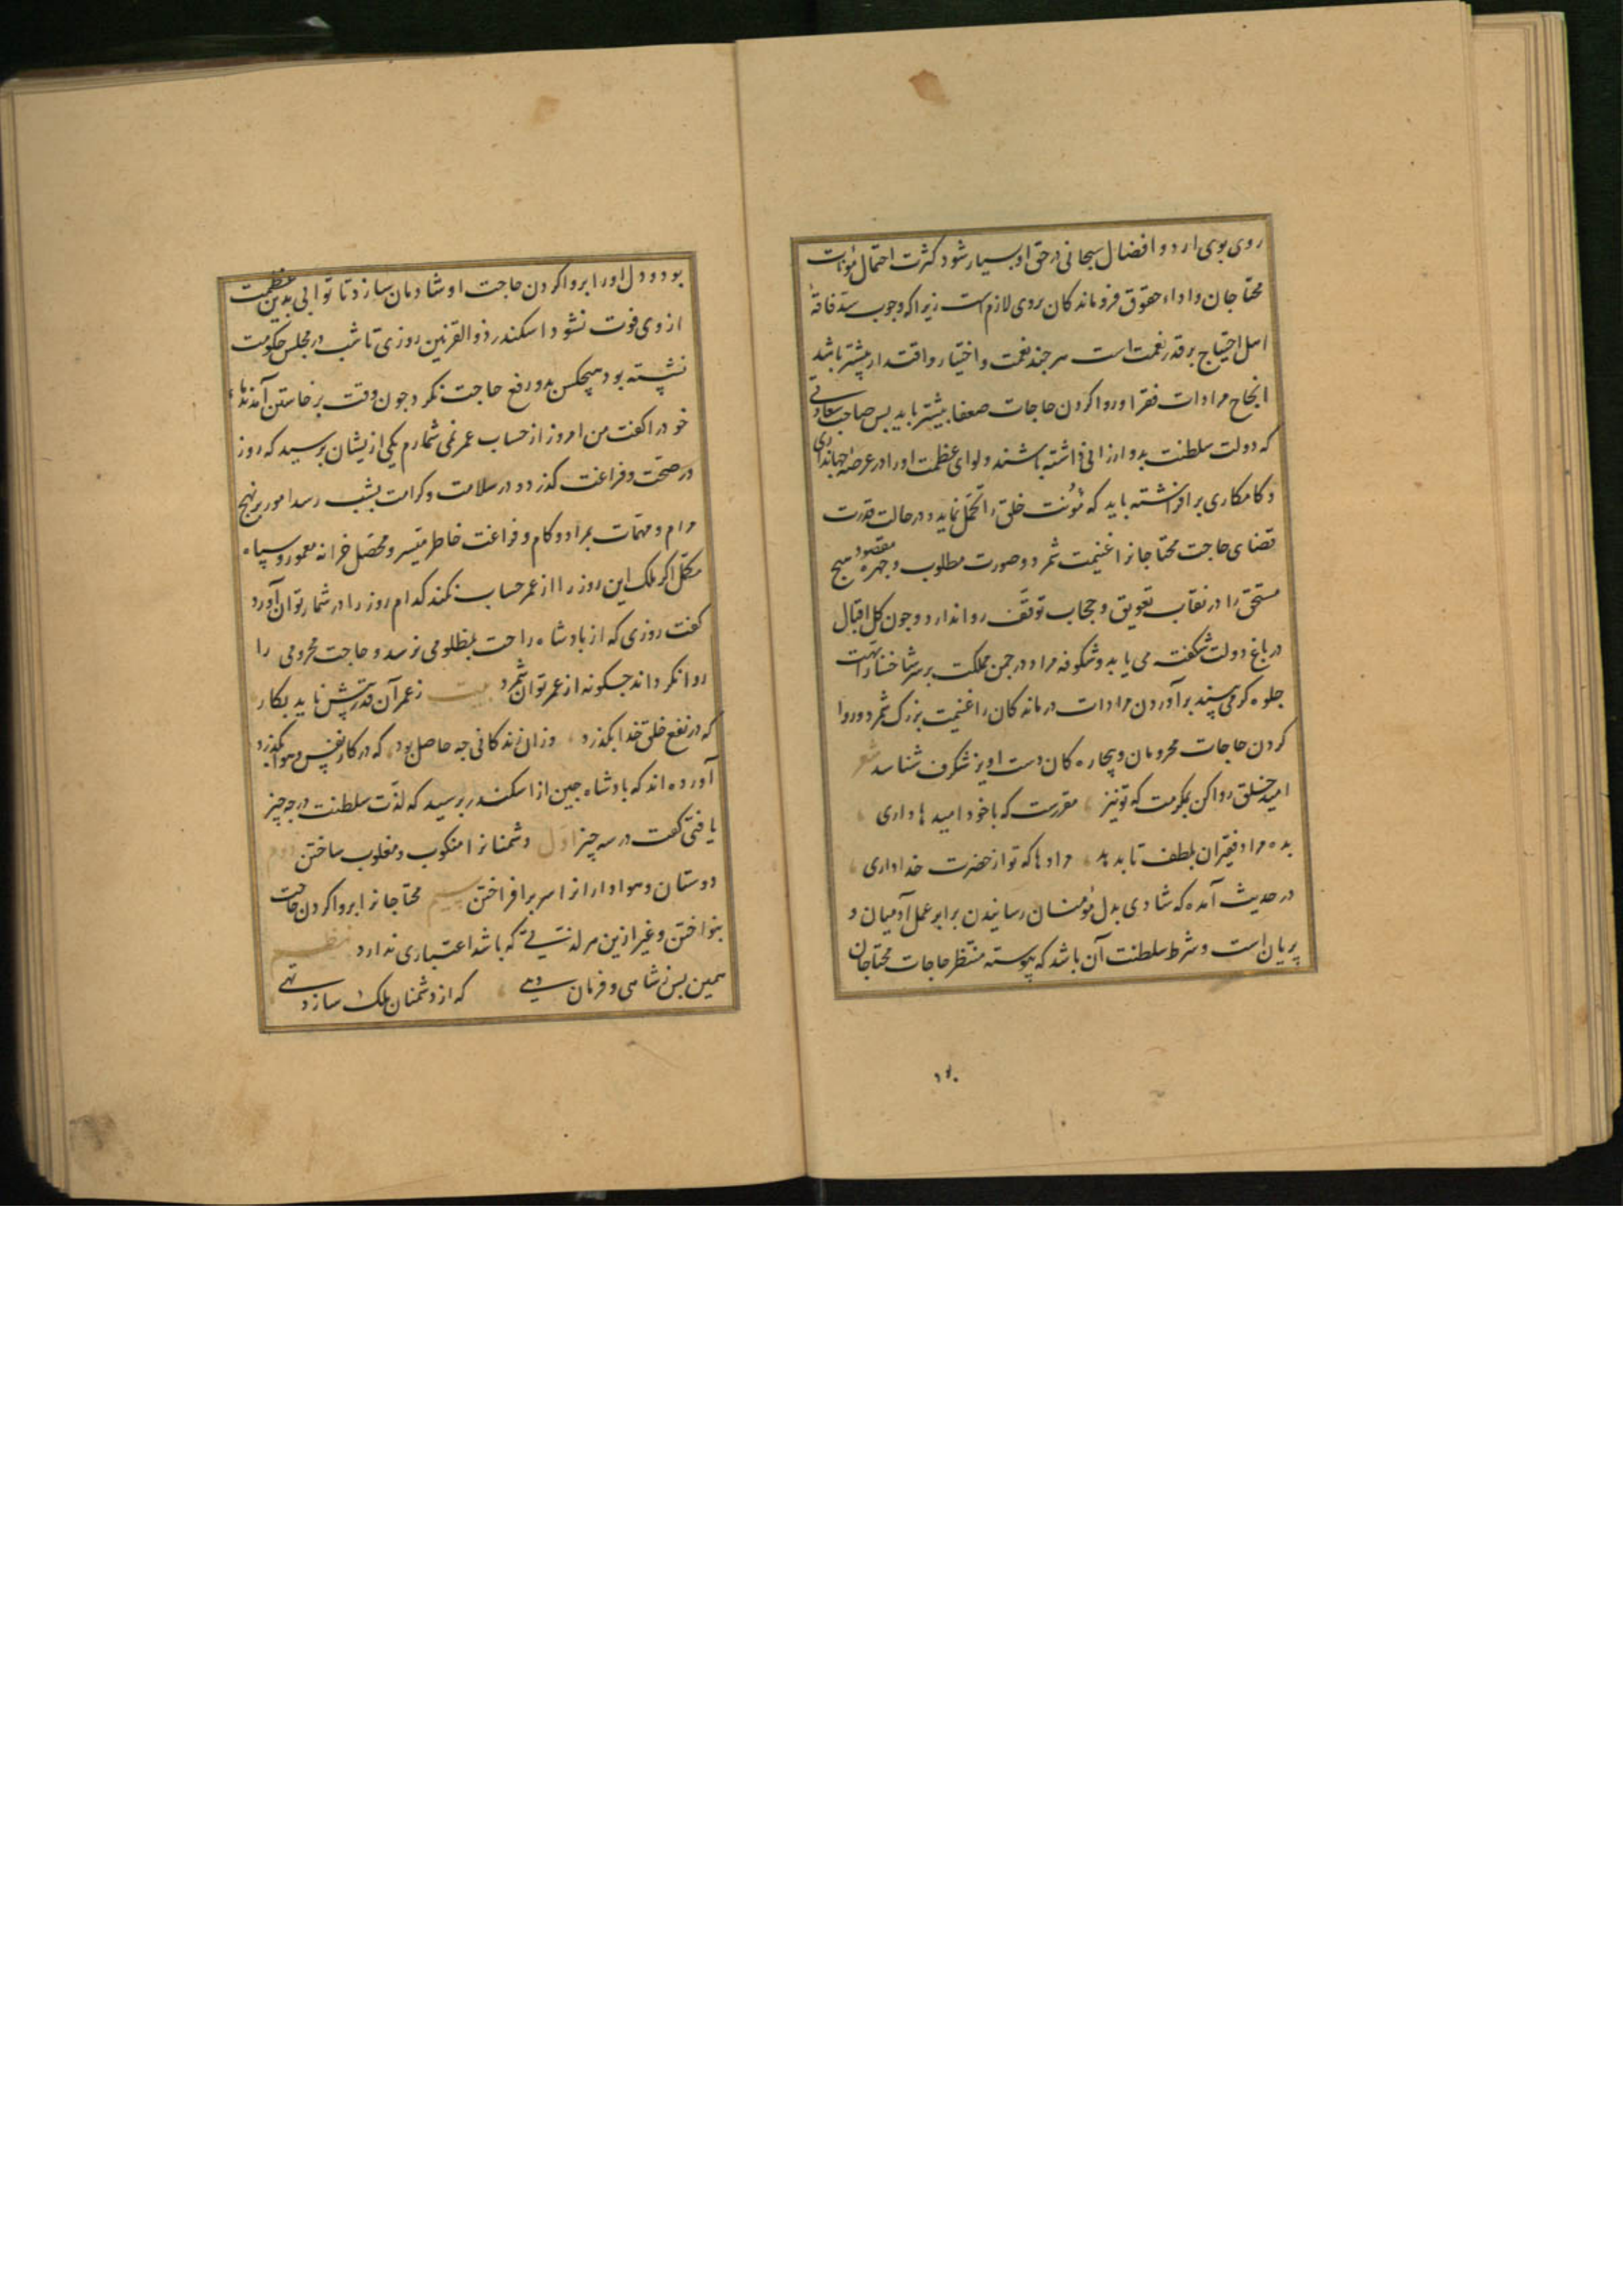 روی بوی ارد و افضال سبحانی در حق او بسیار شود کثرت احتمال مؤنات
محتاجان و اداء حقوق فروماندکان بروی لازم است زیرا که وجوب سد فاقهٔ
اهل احتیاج بر قدر نعمت است هر جند نعمت و اختیار و اقتدار بیشتر باشد
انجاح مرادات فقرا و روا کردن حاجات ضعفا بیشتر باید بس صاحب سعادتی
که دولت سلطنت بدو ارزانی داشته باشند و لوای عظمت او را در عرصهٔ جهانداری
و کامکاری برافراشته باید که مؤنت خلق را تحمل نماید و در حالت قدرت
قضای حاجت محتاجانرا غنیمت شمرد و صورت مطلوب و جهره مقصود هیج
مستحق را در نقاب تعویق و حجاب توقف روا ندارد و جون کل اقبال
در باغ دولت شکفته می یابد و شکوفه مراد در جمن مملکت بر سر شاخسار ابهت
جلوه کر می بیند برآوردن مرادات درماندکان را غنیمت بزرک شمرد و روا
کردن حاجات محرومان و بیجاره کان دست اویز شکرف شناسد شعر
امید خلق روا کن بمکرمت که تو نیز مقررست که با خود امیدها داری
بده مراد فقیران بلطف تا بدهد مرادها که تو از حضرت خدا داری
در حدیث آمده که شادی بدل مؤمنان رسانیدن برابر عمل آدمیان و
پریان است و شرط سلطنت آن باشد که پیوسته منتظر حاجات محتاجان
بود و دل او را بروا کردن حاجت او شادمان سازد تا ثوابی بدین عظمت
از وی فوت نشود اسکندر ذوالقرنین روزی تا شب در مجلس حکومت
نشسته بود هیچکس بدو رفع حاجت نکرد جون وقت برخاستن آمد ندماء
خود را کفت من امروز از حساب عمر نمی شمارم یکی ازیشان برسید که روز
در صحت و فراغت کذرد و در سلامت و کرامت بشب رسد امور بر نهج
مرام و مهمات بمراد و کام و فراغت خاطر میسر و محصل خزانه معمور و سپاه
مکمل اکر ملک این روز را از عمر حساب نکند کدام روز را در شمار توان آورد
کفت روزی که از بادشاه راحت بمظلومی نرسد و حاجت محرومی را
روا نکرداند جکونه از عمر توان شمرد بیت ز عمر آن قدرش ناید بکار
که در نفع خلق خدا بکذرد وزان زندکانی جه حاصل بود که در کار نفس و هوا بکذرد
آورده اند که بادشاه جین از اسکندر برسید که لذت سلطنت در جه چیز
یافتی کفت در سه چیز اول دشمنانرا منکوب و مغلوب ساختن دوم
دوستان و هوادارانرا سر برافراختن سیم محتاجانرا بروا کردن حاجت
بنواختن و غیر ازین هر لذتی که باشد اعتباری ندارد نظم
همین بس ز شاهی و فرمان دهی که از دشمنان ملک سازد تهی